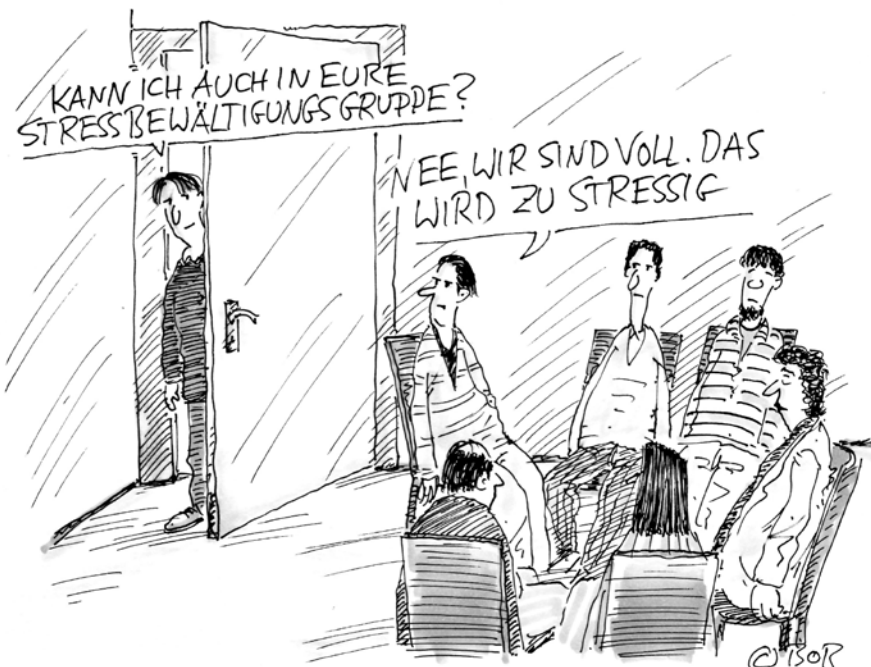 KANN ICH AUCH IN EURE
STRESSBEWÄLTIGUNGSGRUPPE?
NEE, WIR SIND VOLL. DAS
WIRD ZU STRESSIG
© BOR